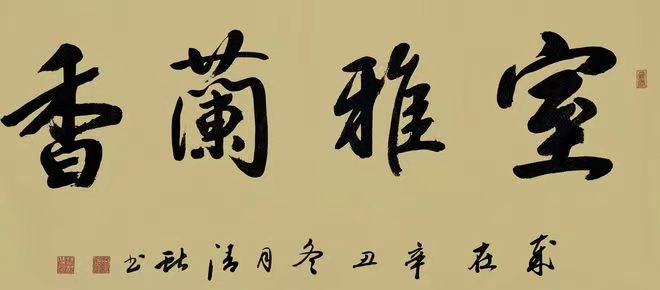 室雅蘭香
歲在辛丑冬月清秋书